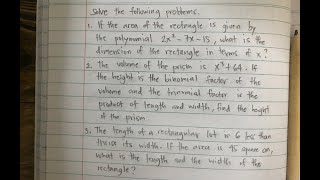 Solve the following problems.
1. If the area of the rectangle is given by
the polynomial 2x² - 7x - 15, what is the
dimension of the rectangle in terms of x?
2. The volume of the prism is x³ + 64. If
the height is the binomial factor of the
volume and the trinomial factor is the
product of length and width, find the height
of the prism
3. The length of a rectangular lot is 6 less than
thrice its width. If the area is 45 square cm,
what is the length and the width of the
rectangle?